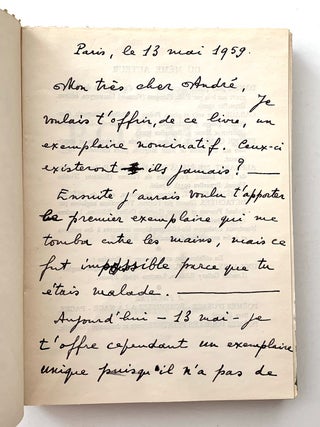 Paris, le 13 mai 1959.
Mon très cher André,
Je
voulais t'offrir, de ce livre, un
exemplaire nominatif. Ceux-ci
existeront ils jamais? —
Ensuite j'aurais voulu t'apporter
le premier exemplaire qui me
tomba entre les mains, mais ce
fut impossible parce que tu
étais malade. —
Aujourd'hui - 13 mai - je
t'offre cependant un exemplaire
unique puisqu'il n'a pas de